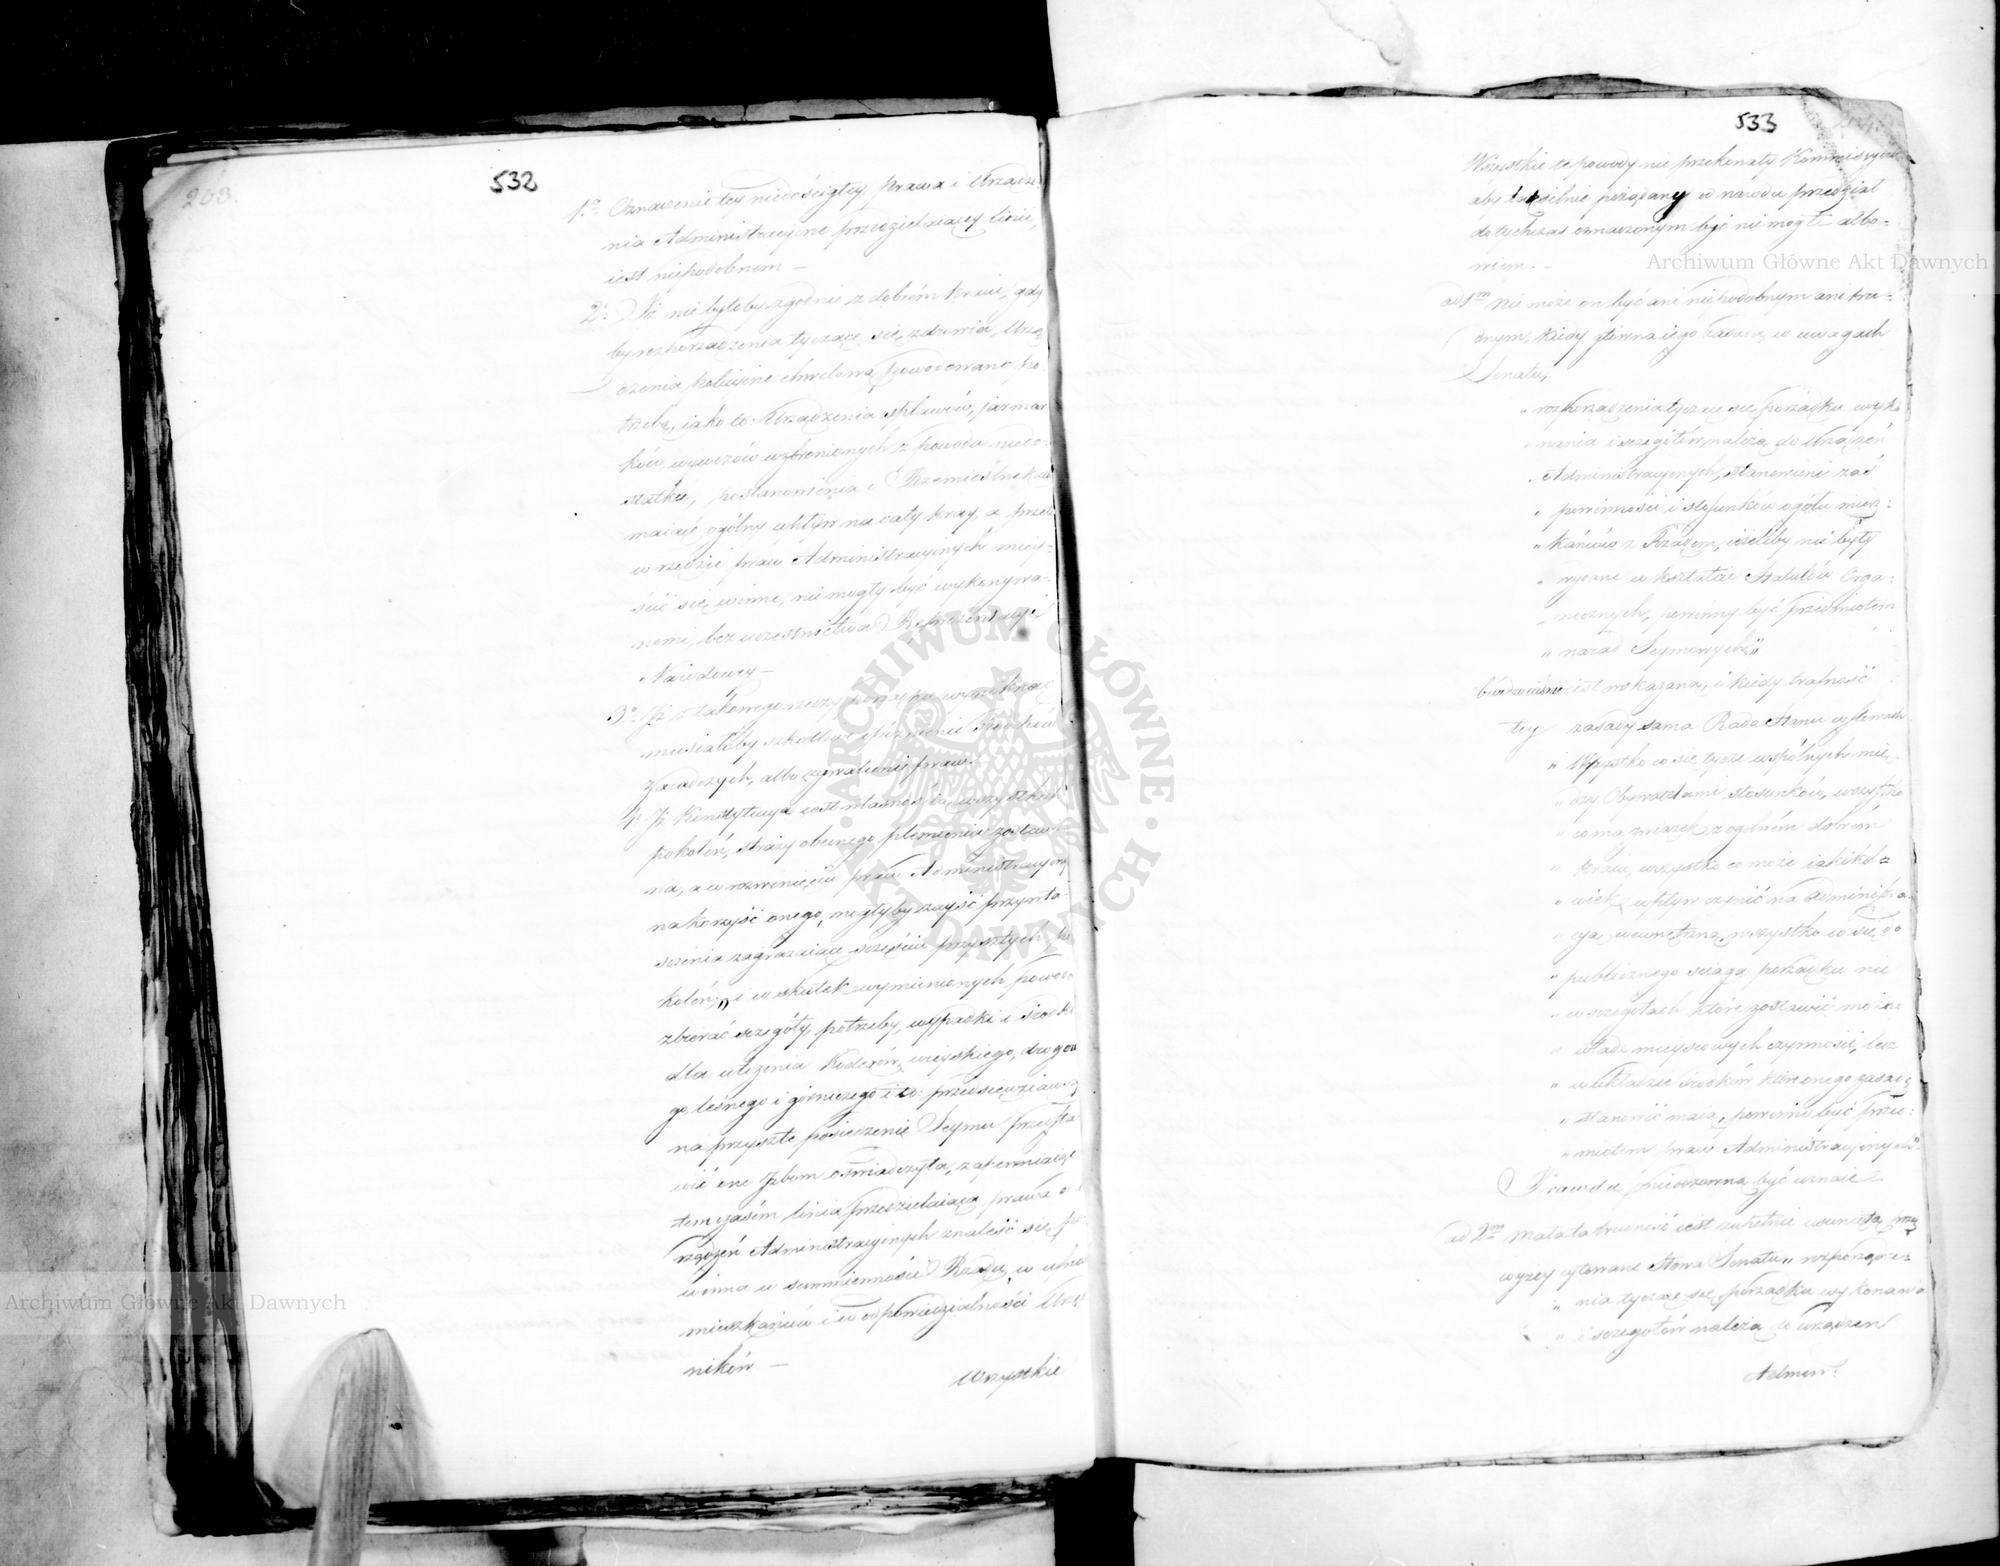 203.
532
1º Oznaczenie tey niedościgłey, prawa i Urządze
nia Administracyjne przedzielaiącey linii,
iest niepodobnem —
2º Iż nie byłoby zgodnie z dobrém kraiu, gdy
by rozporządzenia tyczące się zdrowia, Urzą
dzenia policyine chwilową powodowane po
trzebą, iako to: Urządzenia spławów, jarmar
ków, wywozów wzbronionych z powodu niedo
statku, postanowienia o Rzemieślnikach
maiące ogólny wpływ na cały kray, a przeto
w rzędzie praw Administracyinych mieś-
ścić się winne, nie mogły być wykonywa-
nemi, bez uczestnictwa Reprezentacyi
Narodowey —
3º Iż z takowego rzeczy porządku wyniknąć
musiałoby szkodliwe spóźnienie środków
zaradczych, albo zgwałcenie praw.
4º Iż Konstytucya iest własnością wszystkich
pokoleń, straży obecnego plemienia zostawio
na, a w rozwinięciu praw Administracyjnych
na korzyść onego, mogłyby zayść przyrta-
czenia zagrażaiące szczęściu przyszłych po
koleń;„ i w skutek wymienionych powodów
zbierać szczegóły, potrzeby, wypadki i środki
dla ułożenia Kodexów, wieyskiego, drogowe
go, leśnego i górniczego i to: przedsięwziąwszy
na przyszłe posiedzenie Seymu przedsta-
wić one Izbom oświadczyła, zapewniaiąc
tem czasem linia przedzielaiąca prawa od
rządzeń Administracyinych znaleść się po
winna w sumienności Rządu, w ufno
mieszkańców i w odpowiedzialności Urzęd
ników —
Wszystkie
533
Wszystkie te powody nie przekonały Kommissyi
aby tak silnie pożądany od narodu przedział
dotychczas oznaczonym być nie mógł albo-
wiem. —
ad 1m Nie może on być ani niepodobnym ani tru-
dnym, kiedy główna iego zasada w uwagach
Senatu,
„ rozporządzenia tyczące się porządku wyko
„ nania i szczegółów należą do Urządzeń
„ Administracyjnych, stanowienie zaś
„ powinności i stosunków ogółu miesz:
„ kańców z Rządem, ieżeliby nie były
„ ryczne w kształcie Statutów Orga:
„ nicznych, powinny być przedmiotem
„ narad Seymowych„
bardzo iaśnie iest wskazana, i kiedy trafność
tey zasady sama Rada Stanu w słowach
„ Wszystko co się tycze wspólnych mię
„ dzy Obywatelami stosunków, wszystko
„ co ma związek z ogólném dobrém
„ kraiu, wszystko co może iakikol=
„ wiek wpływ czynić na administra
„ cyą wewnętrzną, wszystko co się do
„ publicznego ściąga porządku nie
„ w szczegółach które zostawić można
„ władz mieyscowych czynności, lecz
„ w układzie środków które onego zasadę
„ stanowić maią, powinno być przed:
„ miotem praw Administracyinych"
Prawdę niezawodną być uznaie
ad 2m Mała ta trudność iest zupełnie usunięta, przez
wyżey cytowane Słowa Senatu „ rozporządze-
„ nia tyczące się porządku wykonania
„ i szczegółów należą do urządzeń
Admin:
Archiwum Główne Akt Dawnych
Archiwum Główne Akt Dawnych
ARCHIWUM GŁÓWNE · AKT DAWNYCH ·